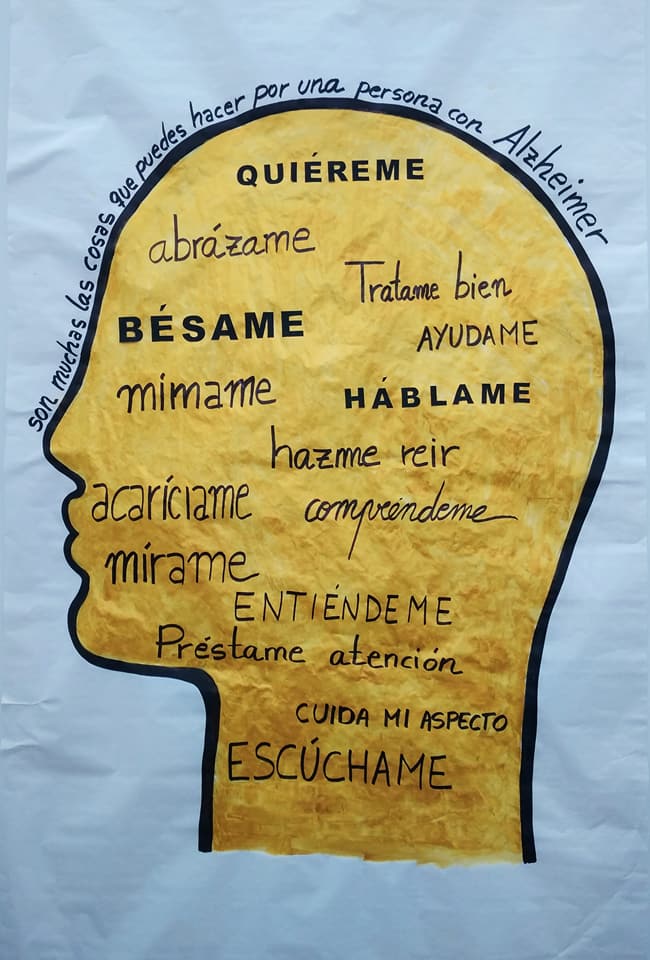 son muchas las cosas que puedes hacer por una persona con Alzheimer
QUIÉREME
abrázame
Tratame bien
BÉSAME
AYUDAME
mimame
HÁBLAME
hazme reir
acaríciame
compréndeme
mírame
ENTIÉNDEME
Préstame atención
CUIDA MI ASPECTO
ESCÚCHAME